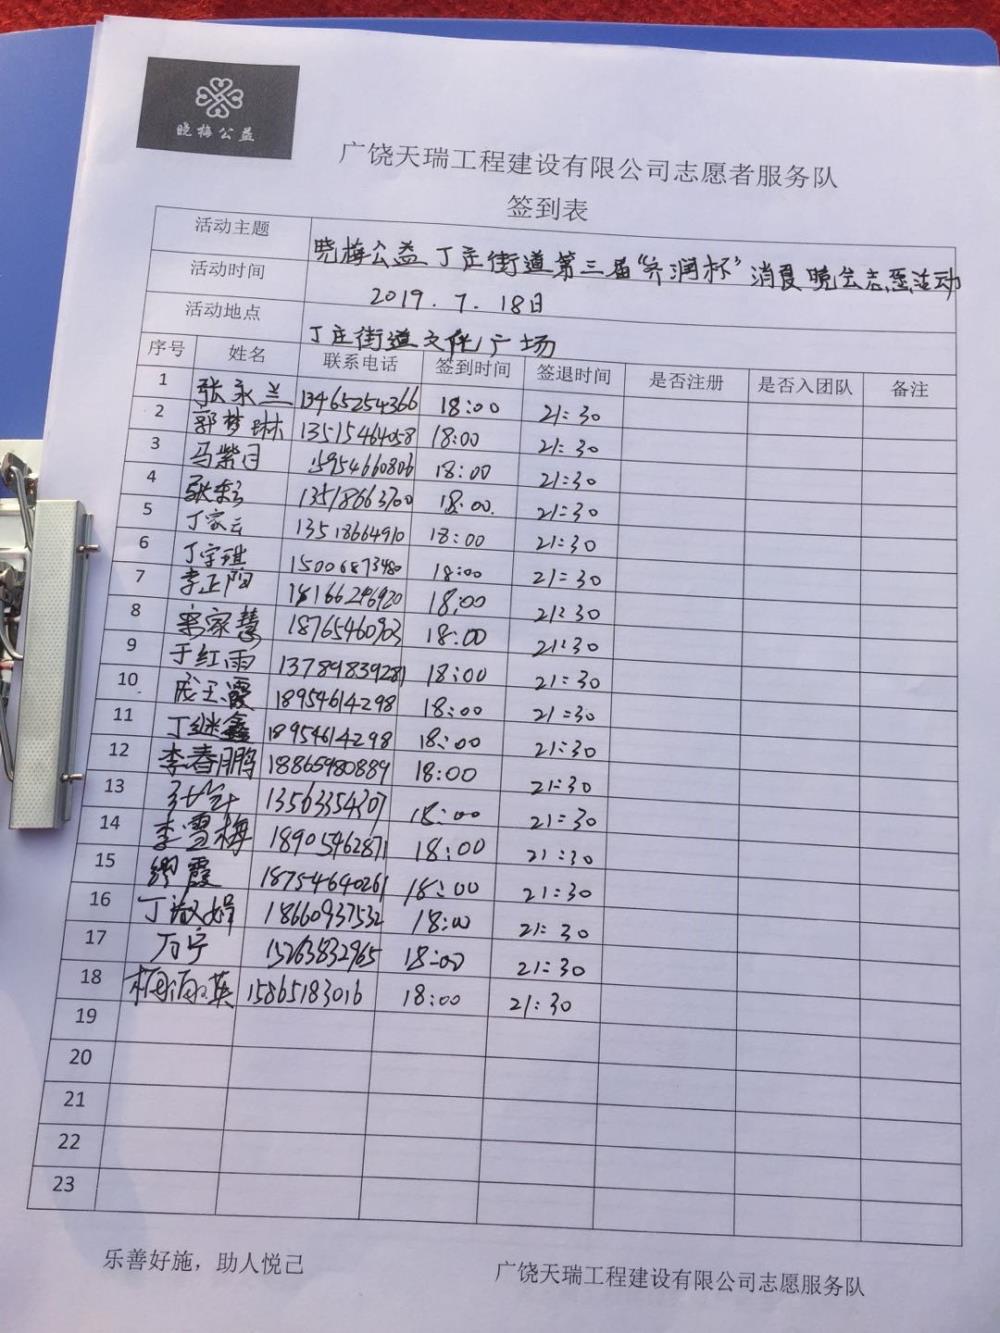 晓梅公益
广饶天瑞工程建设有限公司志愿者服务队
签到表
活动主题 晓梅公益丁庄街道第三届“齐润杯”消夏晚会志愿活动
活动时间 2019.7.18日
活动地点 丁庄街道文化广场
序号 姓名 联系电话 签到时间 签退时间 是否注册 是否入团队 备注
1 张永兰 13465254366 18:00 21:30
2 郭梦琳 13515464058 18:00 21:30
3 马紫月 15954660806 18:00 21:30
4 张彩 13518663700 18:00. 21:30
5 丁家云 13518664910 18:00 21:30
6 丁宇琪 15006873480 18:00 21:30
7 李正阳 18166246920 18:00 21:30
8 宋家慧 18765460903 18:00 21:30
9 于红雨 13789839281 18:00 21:30
10 成玉霞 18954614298 18:00 21:30
11 丁继鑫 18954614298 18:00 21:30
12 李春鹏 18865980889 18:00 21:30
13 13563354307 18:00 21:30
14 李雪梅 18905462871 18:00 21:30
15 缪霞 18754640261 18:00 21:30
16 丁淑娟 18660937532 18:00 21:30
17 万宁 15263832965 18:00 21:30
18 梅英 15865183016 18:00 21:30
19
20
21
22
23
乐善好施，助人悦己
广饶天瑞工程建设有限公司志愿服务队